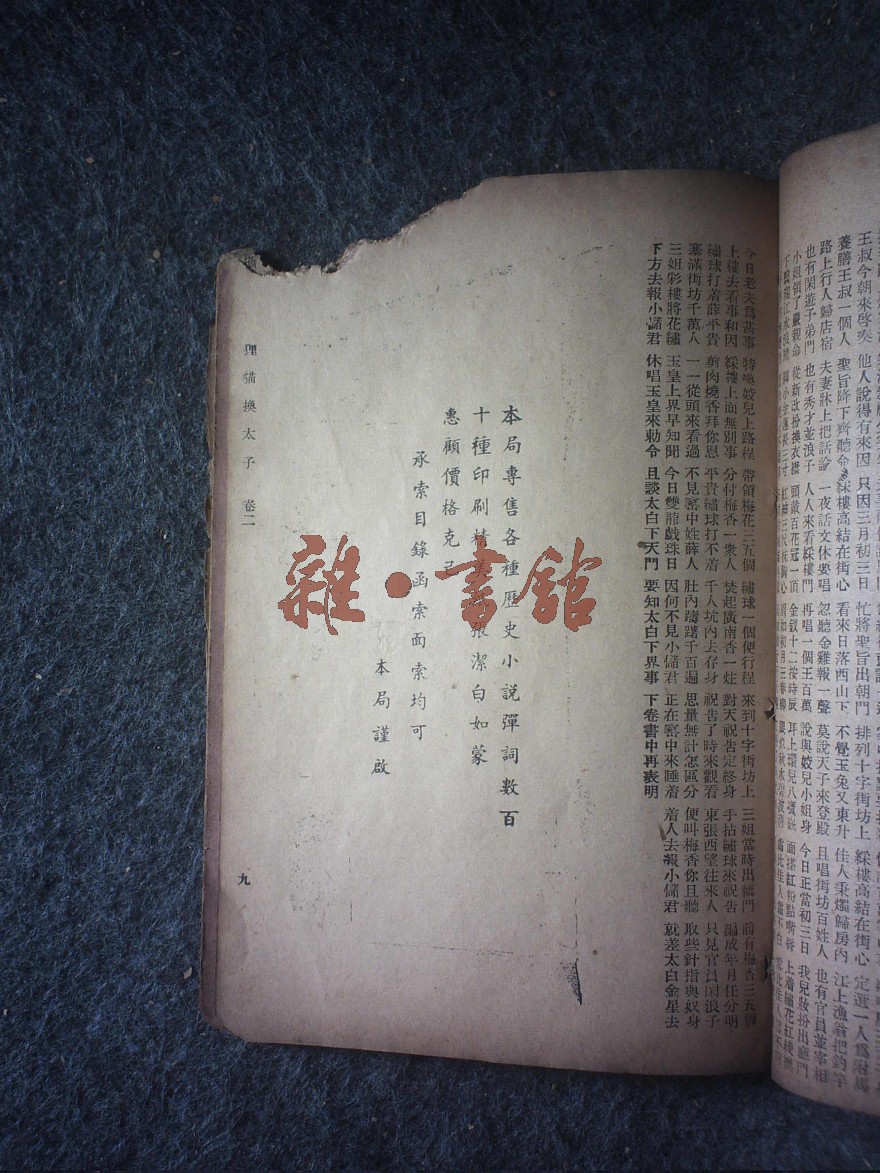 王叔今朝來啓奏 他人說得有來因 只因三月初三日 忙將聖旨出朝門 排列十字街坊上 綵樓高結在街心 定選一人爲附馬
養膳王叔一個人 聖旨降下齊聽命 綵樓高結在街心 看來日落西山下 不覺玉兔又東升 佳人秉燭歸房內 江上漁翁把釣竿
路上行人歸店宿 夫妻牀上把話論 一夜話文休要唱 忽聽金雞報一聲 莫說天子來登殿 且唱街坊百姓人 也有官員並宰相
也有閑遊子弟門 也有秀才並浪子 人人來看綵樓門 再唱一個王百萬 說與姣兒小姐身 今日正當初三日 我兒妝扮出廳門
小姐領了嚴親命 從新改扮換衣襟 頭戴百花冠一頂 金釵十二按時辰 耳上環兒八寶嵌 面搽紅粉點嘴唇 上着繡花紅綾
今日老夫爲甚事 特喚姣兒上路程 帶領梅花三五個 繡球一個便行程 來到十字街坊上 三姐當時出轎門 前有梅香三五個
上樓去看事和因 綵樓上面無別事 分付梅香一衆人 焚起廣南香一炷 對天祝告定終身 手拈繡球來祝告 編成年月任分明
繡球打着薛平貴 剪肉燒香拜你恩 平貴繡球打不着 千人坑內去存身 祝告了時來觀看 東張西望往來人 只見官員浪子
塞滿街坊千萬人 一一從頭來看過 不見密中姓薛人 肚內躊躇千百遍 思量無計怎區分 便叫梅香你且聽 取些針指與奴身
三姐彩樓將花繡 玉皇上界早知聞 今日雙龍戲珠日 因何不見小儲君 正在密中來睡着 着人去報小儲君 就差太白金星去
下方去報小儲君 休唱玉皇來勅令 且談太白下天門 要知太白下界事 下卷書中再表明
本局專售各種歷史小說彈詞數百
十種印刷精美紙張潔白如蒙
惠顧價格克己
承索目錄函索面索均可
本局謹啟
狸貓換太子 卷二
九
雜·書館